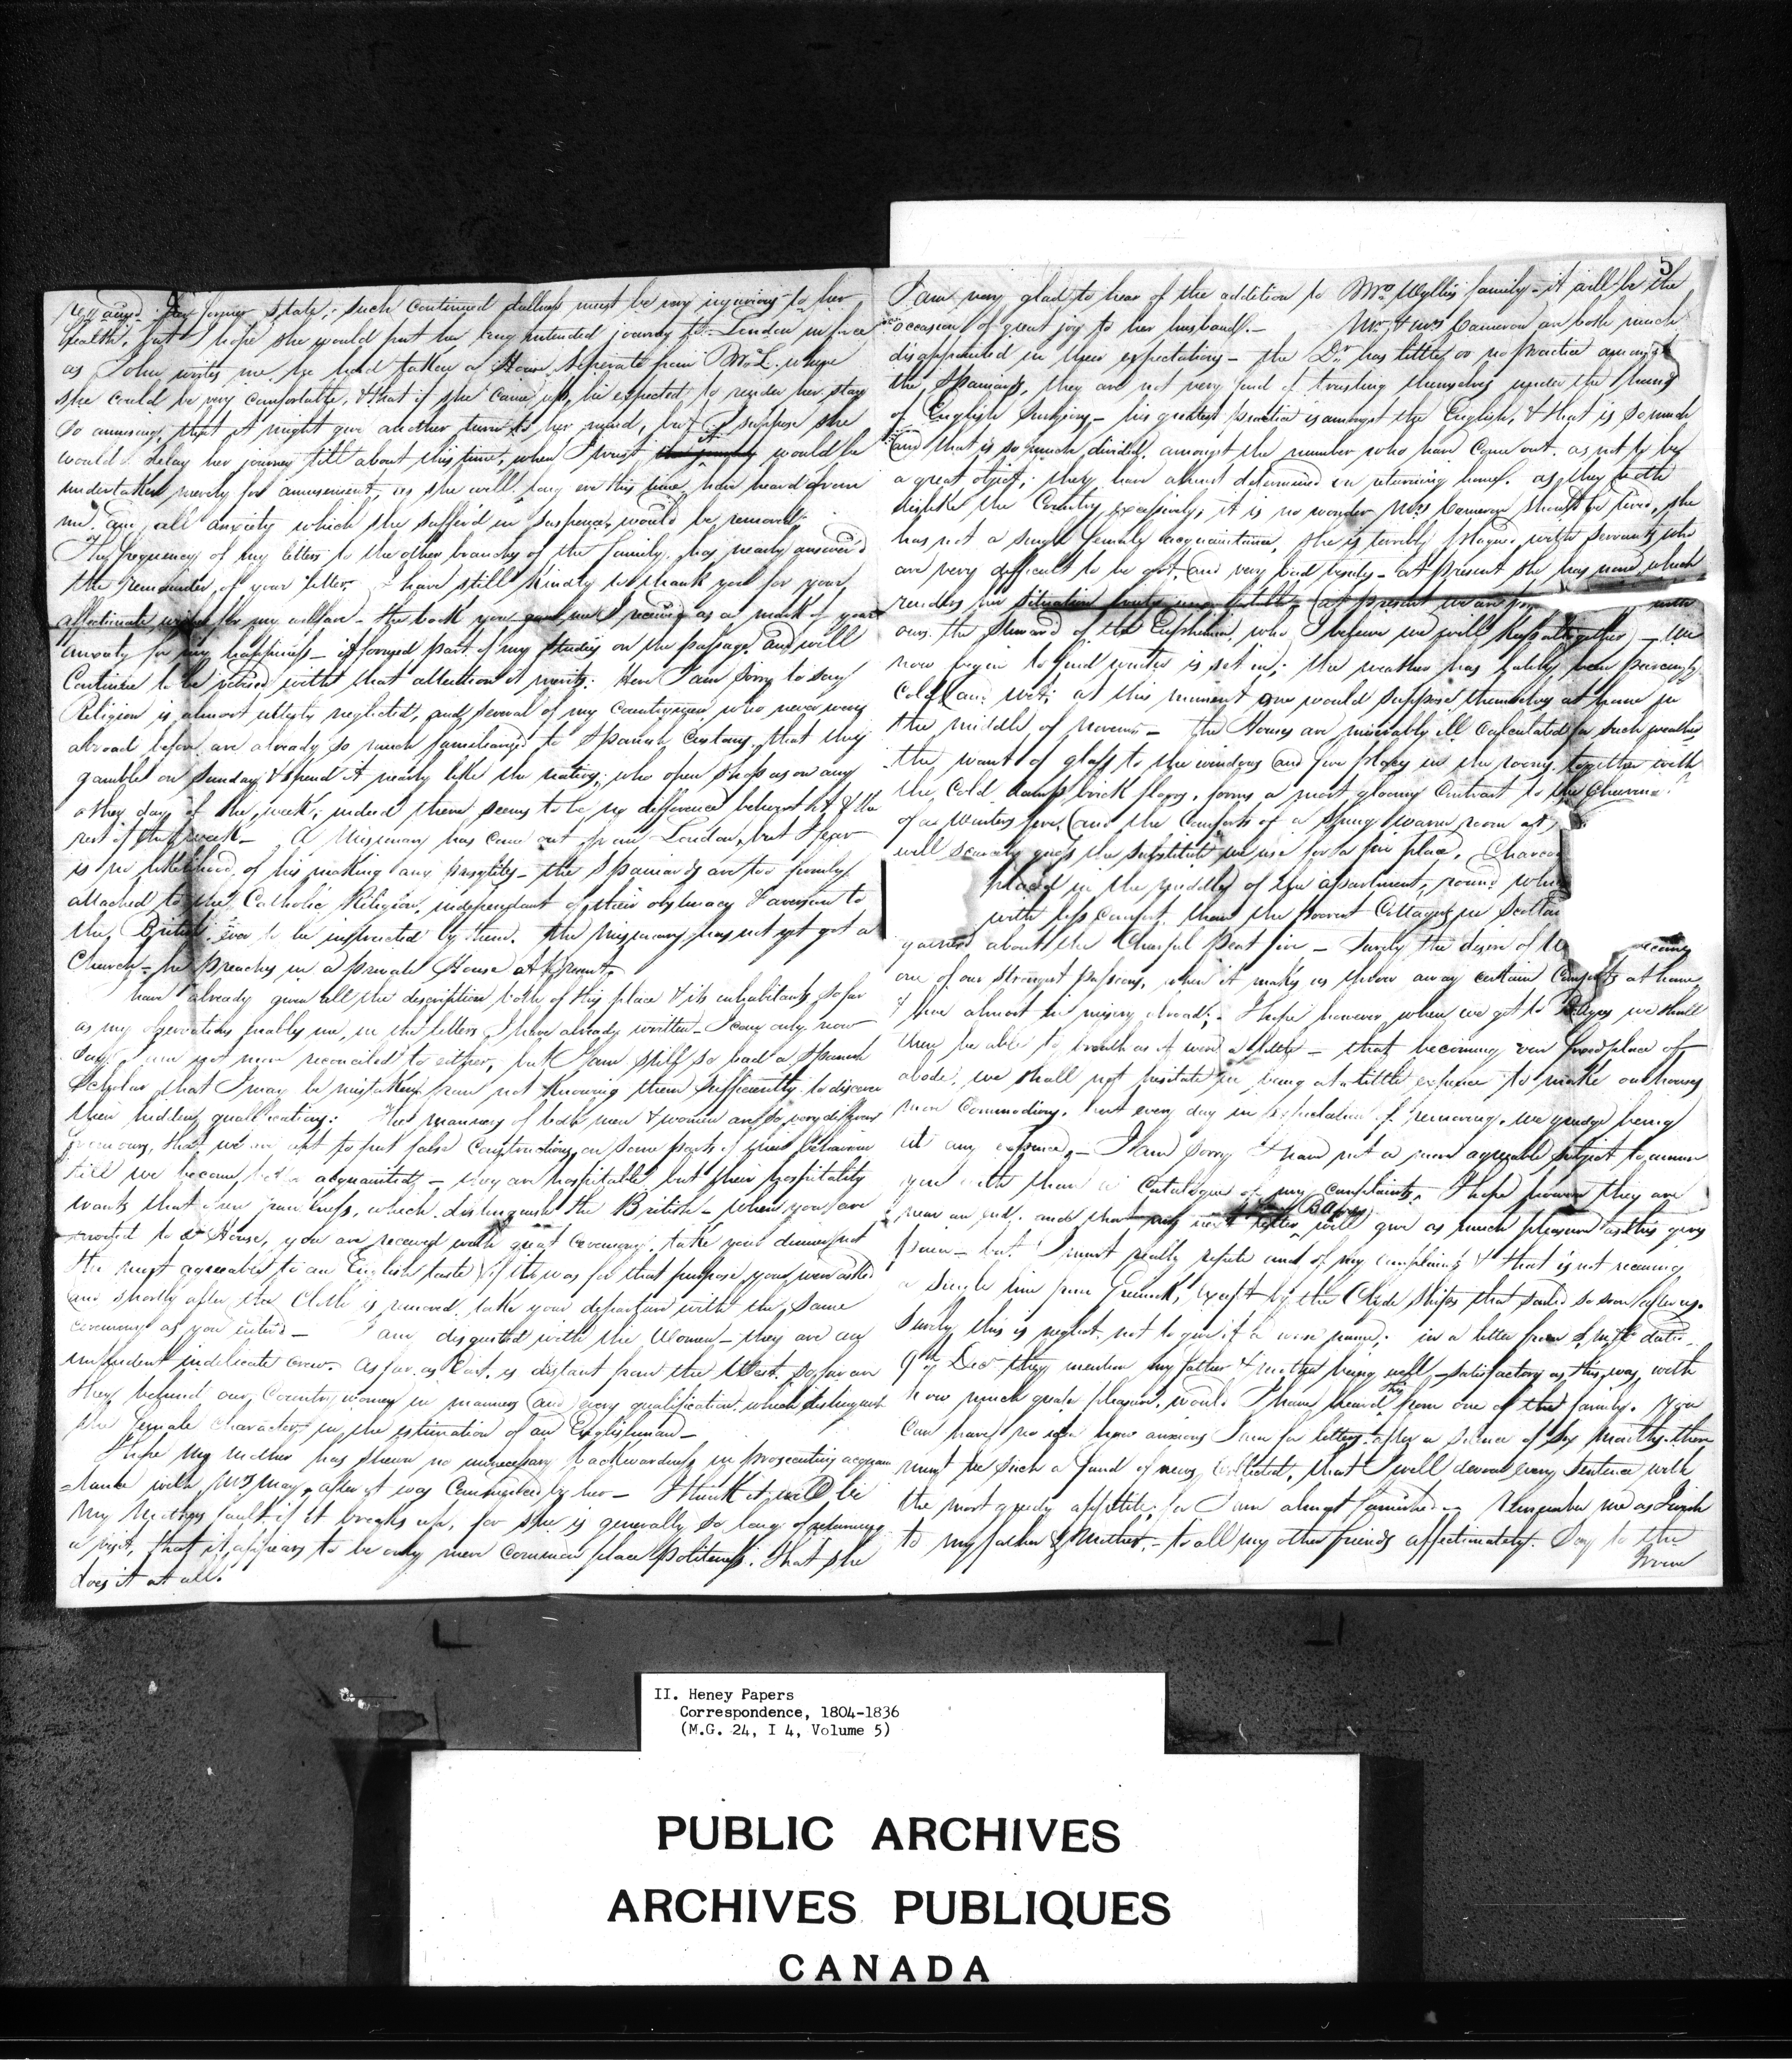 4
former state; such continued dullness must be very injurious to her
health, but I hope she would put her long intended journey to London in force
as John writes me, he had taken a House separate from Mr L. where
she could be very comfortable, & that if she came up, he expected to render her stay
so amusing, that it might give another turn to her mind, but I suppose she
would delay her journey till about this time, when I trust it would be
undertaken merely for amusement, as she will long ere this time have heard from
me. all anxiety which she suffer'd in suspence, would be removed,
The frequency of my letters to the other branches of the family, has nearly answer'd
the remainder of your letter. I have still kindly to thank you for your
affectionate wishes for my welfare - the book you gave me I received as a mark of your
anxiety for my happiness - it formed part of my studies on the passage and will
Continue to be with that attention it merits: Here I am sorry to say
Religion is almost utterly neglected, and several of my Countrymen who never were
abroad before are already so much familiarized to Spanish Customs, that they
gamble on Sunday & spend it nearly like the natives, who open shops as on any
other day of the week; indeed there seems to be no difference between it & the
rest of the week - A Missionary has come out from London, but I fear
is no likelihood of his making any proselytes - the Spaniards are too firmly
attached to the Catholic Religion, independant of their obstinacy & aversion to
the British ever to be instructed by them. The Missionary has not yet got a
Church - he preaches in a private House at present,
have already given all the description both of this place & its inhabitants, so far
as my observations enable me, in the letters I have already written - I can only now
say I am not more reconciled to either, but I am still so bad a Spanish
Scholar that I may be mistaken from not knowing them sufficiently to discover
their hidden qualifications: The manners of both men & women are so very different
from ours, that we are apt to put false Constructions on some parts of their behaviour
till we become better acquainted, - they are hospitable, but their hospitality
wants that openness, which distinguishes the British - when you are
invited to a House, you are received with great Ceremony, take your dinner, not
the most agreeable to an English taste if it was for that purpose you were asked
and shortly after the Cloth is removed, take your departure with the same
ceremony as you enter'd - I am disgusted with the Women - they are an
impudent indelicate crew. As far as East is distant from the West, so far are
they behind our Country women in manners and every qualification which distinguish
the female character in the estimation of an Englishman -
I hope my mother has shewn no unnecessary backwardness in prosecuting acquain
-tance with Mrs May, after it was Commenced by her - I think it will be
my Mothers fault if it breaks up, for she is generally so long of returning
a visit, that it appears to be only mere common place politeness, that she
does it at all.
5
I am very glad to hear of the addition to Mrs Wyllie's family - it will be the
occasion of great joy to her husband. - Mr & Mrs Cameron are both much
disappointed in their expectations - the Dr has little or no practice amongst
the Spaniards, they are not very fond of trusting themselves under the hands
of English Surgeons - his greatest practice is amongst the English, & that is so much
and that is so much divided amongst the number who have come out, as not to be
a great object; they have almost determined on returning home, as they both
dislike the Country excessively; it is no wonder Mrs Cameron should be tired, she
has not a single female acquaintance, she is terribly plagued with servants who
are very difficult to be got, and very bad besides - at present she has none which
renders her situation (at present we are with
ours the Steward of the Euphemia, who I believe we will keep altogether) - We
now begin to find winter is set in; the weather has lately been piercingly
Cold and wet; at this moment one would suppose themselves at home in
the middle of - the Houses are miserably ill Calculated for such weather,
the want of glass to the windows and fire places in the rooms, together with
the Cold damp brick floors, forms a most gloomy Contrast to the
of a Winters fire, and the Comforts of a snug warm room at
will scarcely guess the substitute we use for a fire place, Charcoal
placed in the middle of the apartment, round which
with less Comfort, than the poorest Cottagers in Scotland
gather'd about the Chearful Peat fire - Surely the desire of
one of our strongest passions, when it makes us throw away certain Comforts at home
& live almost in misery abroad; - I hope however when we get to we shall
then be able to breath as it were a little - that becoming our fixed place of
abode, we shall not hesitate in being at a little expence to make our houses
more Commodious, but every day in expectation of removing, we grudge being
at any expence, - I am sorry I have not a more agreeable subject to amuse
you with than a Catalogue of my complaints, I hope however they are
near an end, and that my next letter will give as much pleasure as this gives
pain - but I must really repeat one of my complaints & that is not receiving
a single line from Greenock, except by the Clyde Ships that sailed so soon after us.
Surely this is neglect, not to give it a worse name; in a letter from
9th Decr they mention my father & mother being well - satisfactory as this was, with
how much greater pleasure, would I have heard this from one of the family. You
Can have no idea how anxious I am for letters, after a silence of six months, there
must be such a fund of news Collected, that I will devour every sentence with
the most greedy appetite, for I am almost famished. - Remember me as
to my father & Mother, - to all my other friends affectionately. Say to the
II. Heney Papers
Correspondence, 1804-1836
(M.G. 24, I 4, Volume 5)
PUBLIC ARCHIVES
ARCHIVES PUBLIQUES
CANADA